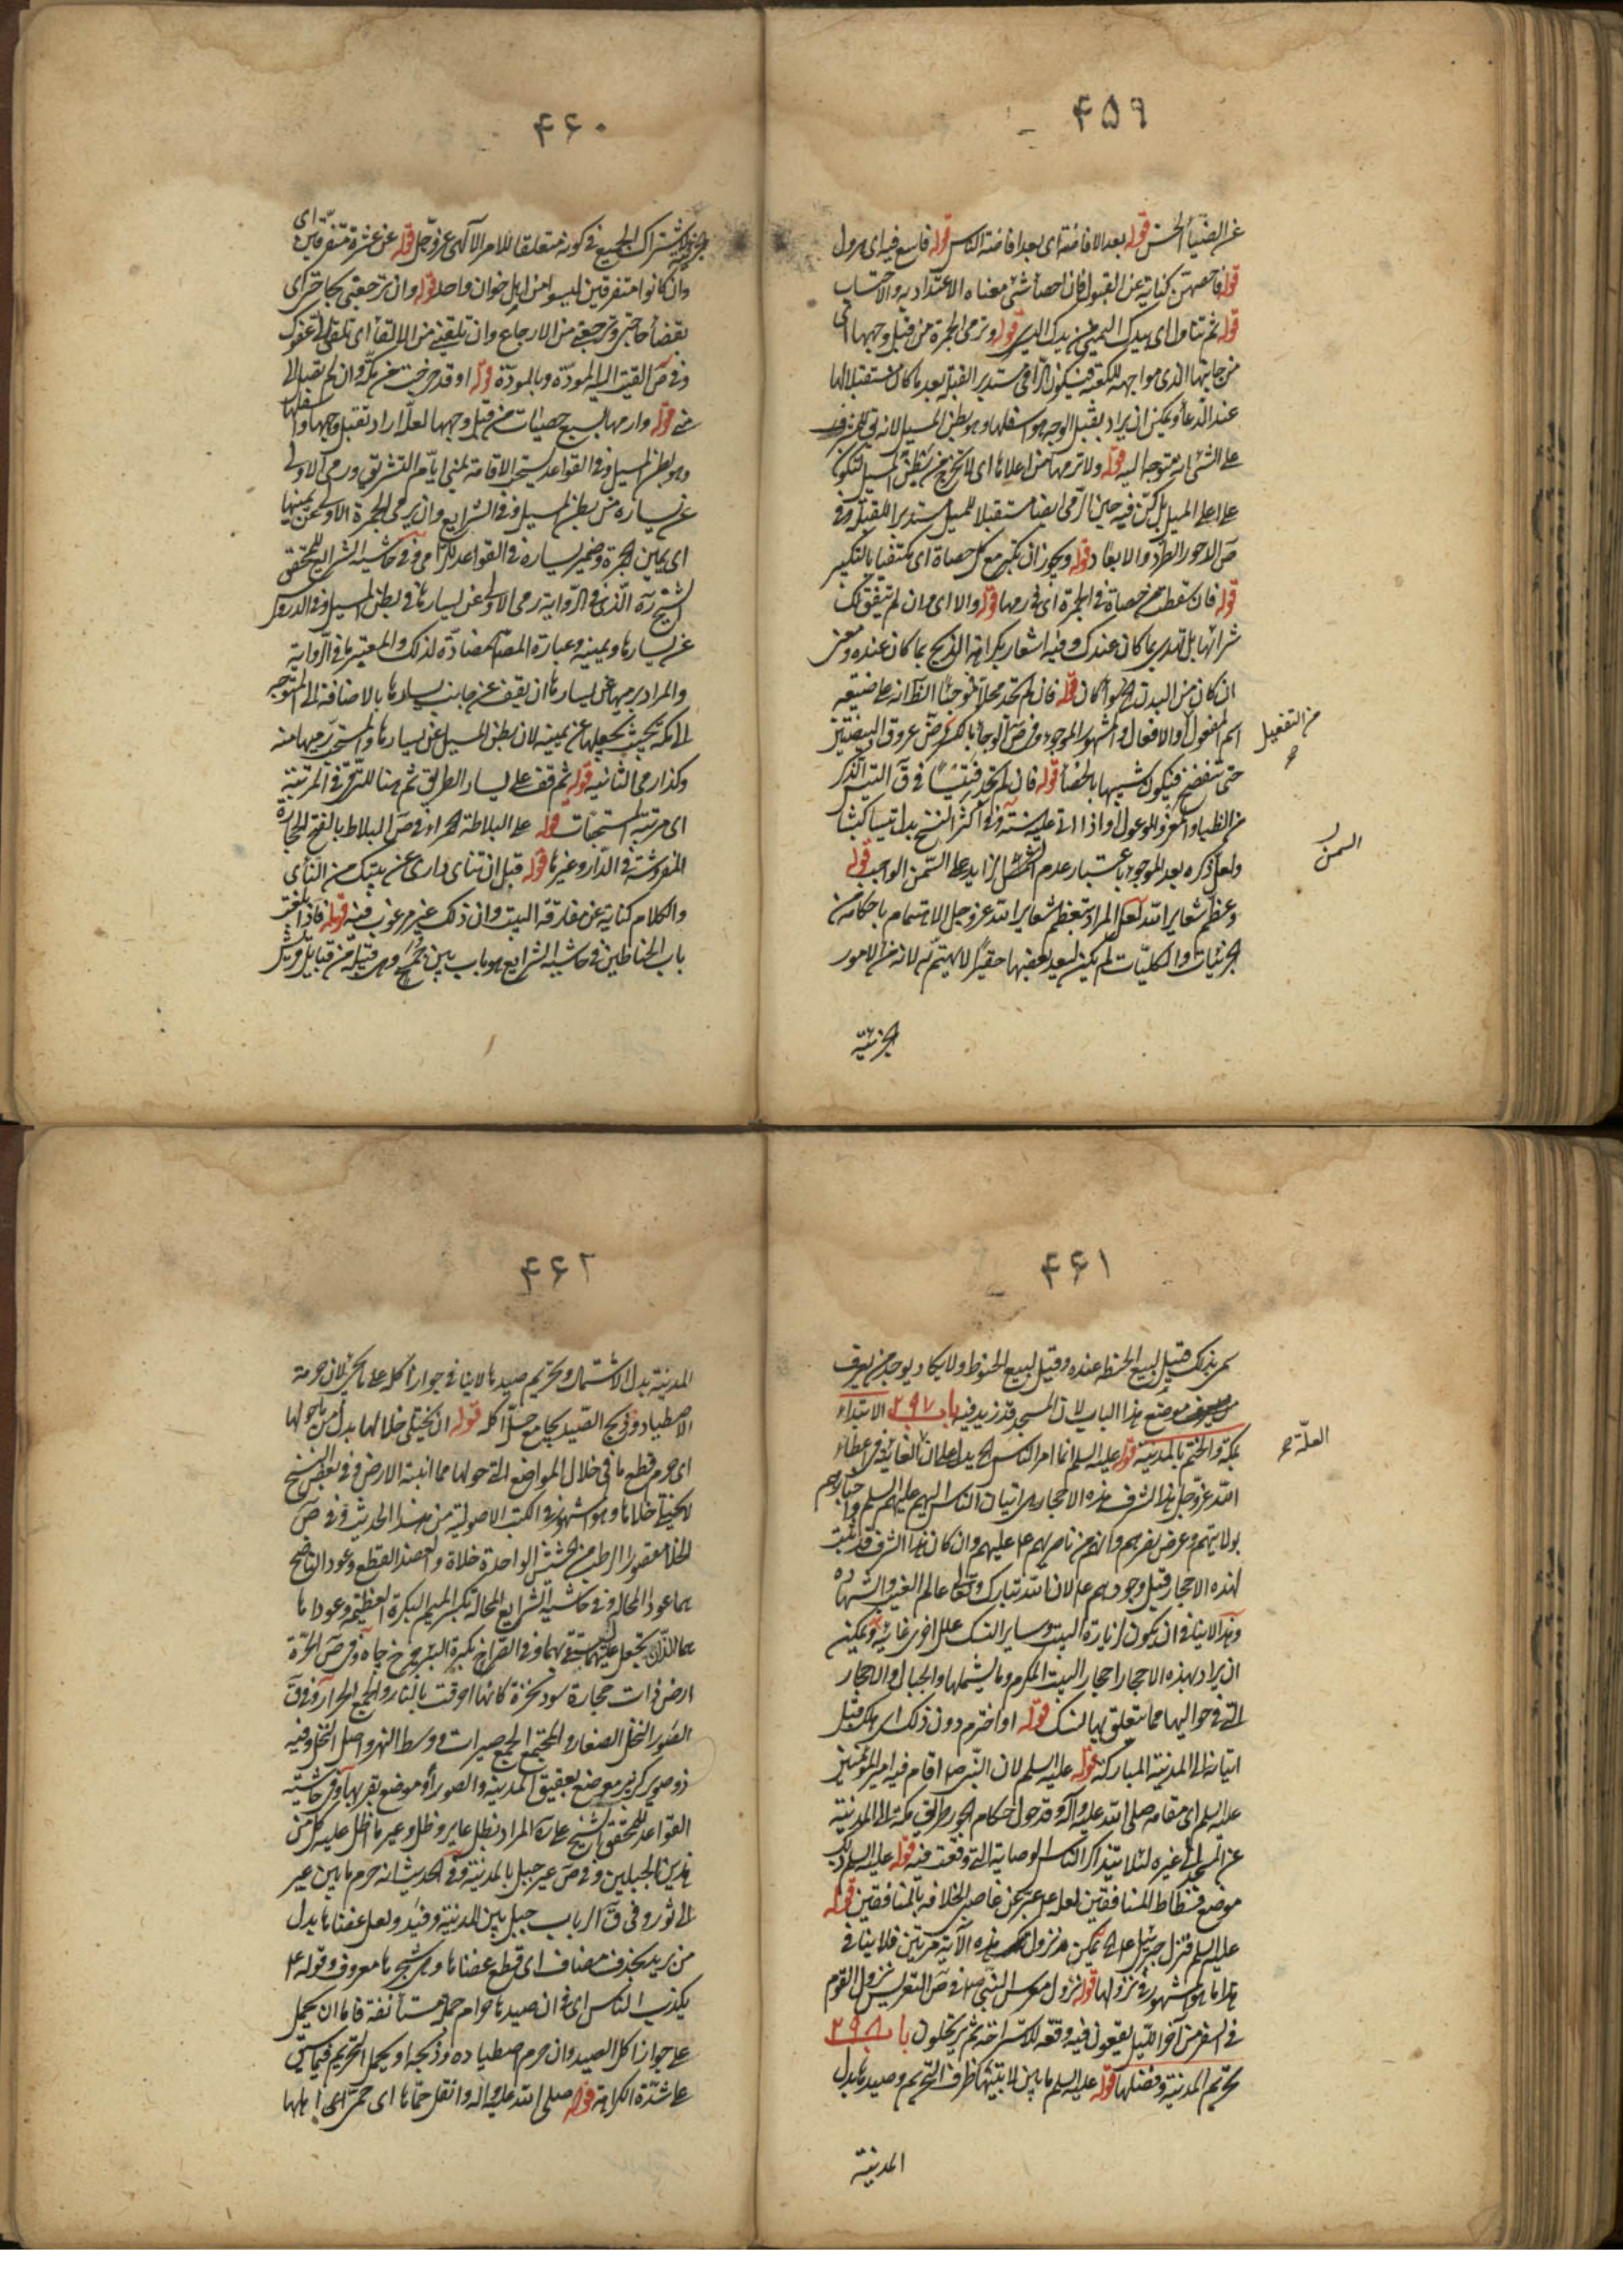 ۴۵۹
قوله بعد الافاضة ای بعد افاضة الناس قوله فاسع فیه ای هرول
قوله فاحصهن کنایة عن القبول فان احصاء شئ معناه الاعتداد به والاحتساب
قوله ثم تناول ای بیدک الیمنی من یدک الیسری قوله وترمی الجمرة من قبل وجهها ای
من جانبها الذی مواجهه للکعبة فیکون الرامی مستدبر القبلة بعد ما کان مستقبلا لها
عند الدعاء ویمکن ان یراد بقبل الوجه هو اسفلها وهو بطن المسیل لانه
علی الشئ انه متوجه الیه قوله ولا ترمها من اعلاها ای لا تخرج من بطن المسیل لتکون
علی اعلی المسیل بل کن فیه حین الرمی ایضا مستقبلا للمسیل مستدبرا للقبلة وفی
ص الدحور الطرد والابعاد قوله ویجوز ان تکبر مع کل حصاة ای مکتفیا بالتکبیر
قوله فان سقطت منک حصاة فی الجمرة ای فی رمیها قوله والا ای وان لم یتفق لک
شرائها بل تهدی بما کان عندک وفیه اشعار بکراهة الذبح بما کان عنده
ان کان من البدن قوله فان لم تجد فحلا فموجئا الظ انه علی صیغة
اسم المفعول والافعال والمشهور الموجوء وفی ص الوجاء بالکسر رض عروق البیضتین
من التفعیل
حتی تنفضخ فیکون شبیها بالخصاء قوله فان لم تجد فتیسا فی ق التیس الذکر
من الظباء والمعز والوعول او اذا اتی علیه سنة وفی اکثر النسخ بدل تیسا کبشا
ولعل ذکره بعد الموجوء باعتبار عدم زاید علی السمن الواجب قوله
السمن
وعظم شعایر الله لعل المراد بتعظیم شعایر الله عز وجل الاهتمام باحکامه من
الجزئیات والکلیات لم یکن لبعد بعضها حقیرا لا یهتم به لانه من الامور
الجزئیة
۴۶۰
الجزئیة لاشتراک الجمیع فی کونه متعلقا للامر الالهی عز وجل قوله عن عشرة متفرقین ای
وان کانوا متفرقین لیسوا من اهل خوان واحد قوله وان ترجعنی بحاجتی ای
بقضاء حاجتی وترجعنی من الارجاع وان تلیقنی من الالقاء ای تلقی الی عفوک
وفی ص القیت الیه المودة وبالمودة قوله او قد مرضیت عن مکة وان لم تقبل الی
منی قوله وارمها بسبع حصیات من قبل وجهها لعله اراد تقبل وجهها واسفلها
وهو بطن المسیل وفی القواعد یستحب الاقامة بمنی ایام التشریق ورمی الاولی
عن یساره من بطن المسیل وفی الشرایع وان یرمی الجمرة الاولی عن یمینها
ای یمین الجمرة وضمیر یساره فی القواعد للرامی وفی حاشیة الشرایع للمحقق
الشیخ ره الذی فی الروایة رمی الاولی عن یسارها فی بطن المسیل وفی الدروس
عن یسارها ویمینه وعبارة المصـ مضادة لذلک والمعتبر ما فی الروایة
والمراد برمیها عن یسارها ان یقف عن جانب یسارها بالاضافة الی المتوجه
الی مکة بحیث یجعلها عن یمینه لان بطن المسیل عن یسارها والمستحب رمیها منه
وکذا رمی الثانیة قوله ثم قف علی یسار الطریق ثم هنا للترقی فی المرتبة
ای مرتبة المستحبات قوله علی البلاطة الحمراء فی ص البلاط بالفتح الحجارة
المفروشة فی الدار وغیرها قوله قبل ان تنای داری عن بیتک من النأی
والکلام کنایة عن مفارقة البیت وان ذلک غیر مرغوب فیه قوله فاذا بلغت
باب الحناطین فی حاشیة الشرایع هو باب بنی جمح وهی قبیلة من قبایل قریش
۴۶۱
سمی بذلک قیل لبیع الحنطة عنده وقیل لبیع الحنوط ولا یکاد یوجد من یعرف
موضع هذا الباب لان المسجد قد زید فیه باب ۲۹۷ الابتداء
بمکة والختم بالمدینة قوله علیه السلم انما امر الناس ان الغایة فی اعطاء
العلة
الله عز وجل هذا الشرف هذه الاحجار هی اتیان الناس الیهم علیهم السلم واخبارهم
بولایتهم وعرض نصرهم وان کان هذا الشرف قد ثبت
لهذه الاحجار قبل وجودهم ع لان الله تبارک وتعالی عالم الغیب والشهادة
وهذا لا ینافی ان یکون لزیارة البیت وسایر النسک علل اخری غائیة ویمکن
ان یراد بهذه الاحجار احجار البیت المکرم وما یشملها والجبال والاحجار
التی فی حوالیها مما یتعلق بها النسک قوله او اخترم دون ذلک ای هلک قبل
اتیانه الی المدینة المبارکة قوله علیه السلم لان النبی ص اقام فیه امیر المؤمنین
علیه السلم ای مقامه صلی الله علیه وآله وقد حول الحکام الجور طریق مکة الی المدینة
عن المسجد الی غیره لئلا یتذاکر الناس الوصایة التی وقعت فیه قوله علیه السلم
موضع فسطاط المنافقین لعله ع عبر عن غاصبی الخلافة بالمنافقین قوله
علیه السلم فنزل جبرئیل ع یمکن نزول هذه الآیة مرتین فلا ینافی
هذا ما هو المشهور فی نزولها قوله نزول معرس النبی ص فی ص التعریس نزول القوم
فی السفر من آخر اللیل یقعون فیه وقعة للاستراحة ثم یرتحلون باب ۲۹۸
تحریم المدینة وفضلها قوله علیه السلم ما بین لابتیها ظرف التحریم وصیدها بدل
المدینة
۴۶۲
المدینة بدل الاشتمال وتحریم صیدها لا ینافی جواز اکله لان حرمة
الاصطیاد وذبح الصید یجامع حل اکله قوله ان یختلی خلالها بدل من ما حولها
ای حرم قطع ما فی خلال المواضع التی حولها مما انبته الارض وفی بعض النسخ
لا یختلی خلاها وهو المشهور فی الکتب الاصولیة من هذا الحدیث وفی ص
الخلا مقصورا الرطب من الحشیش الواحدة خلاة والعضد القطع وعودا الناضح
هما عودا المحالة وفی حاشیة الشرایع المحالة بکسر المیم البکرة العظیمة وعوداها
هما اللذان یجعل علیهما لیستقی بهما وفی الصراح بکرة البئر چرخ چاه وفی ص الحرة
ارض ذات حجارة سود نخرة کانها احرقت بالنار والجمع الحرار وفی ق
الصور النخل الصغار والمجتمع الجمع صیران ووسط النهر واصل النخل وفیه
ذو صویر کزبیر موضع بعقیق المدینة والصوران موضع بقربها وفی حاشیة
القواعد للمحقق الشیخ علی ره المراد بظل عایر وظل وعیر ما اظل علیه کل من
هذین الجبلین وفی ص عیر جبل بالمدینة وفی الحدیث انه حرم ما بین عیر
الی ثور وفی ق الرباب جبل بین المدینة وفید ولعل عضاها بدل
من برید بحذف مضاف ای قطع عضاها وهی شجرها معروف وقوله ع
یکذب الناس ای فی ان صیدها حرام جملة مستأنفة فاما ان یحمل
علی جواز اکل الصید وان حرم اصطیاده وذبحه او یحمل التحریم فیما سبق
علی شدة الکراهة قوله صلی الله علیه واله وانقل حماها ای حمی اهلها